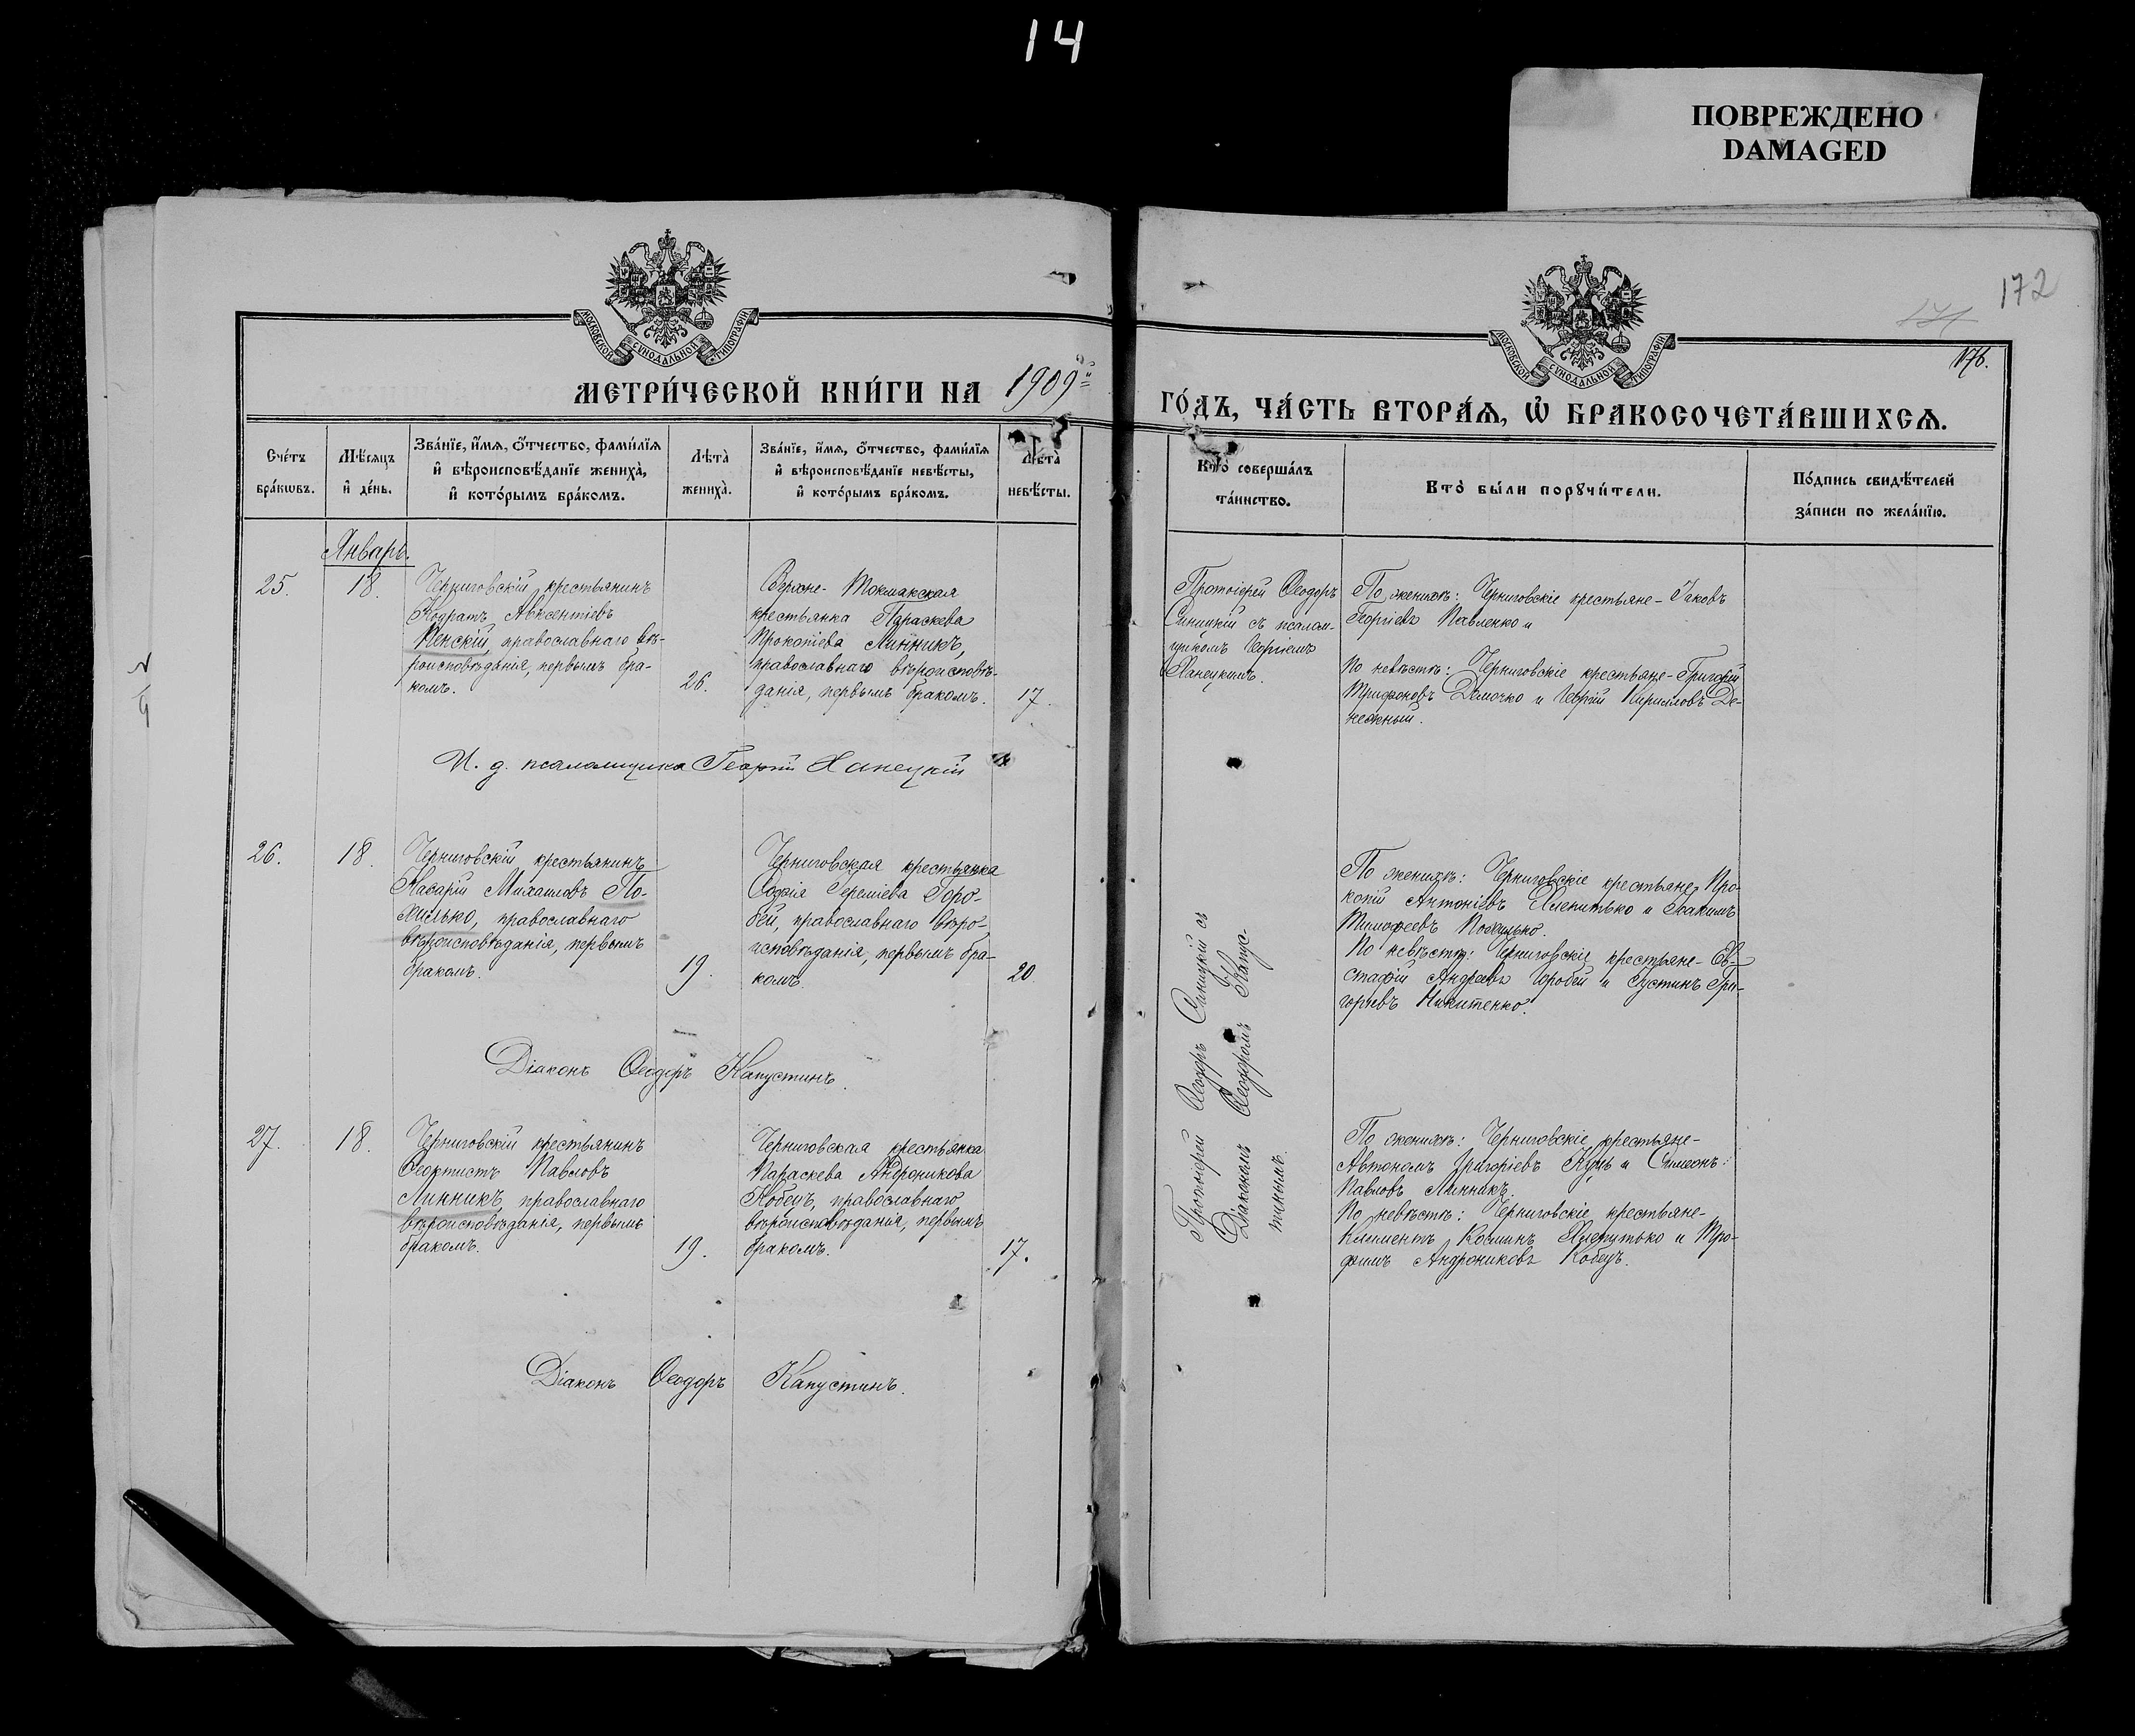 14
ПОВРЕЖДЕНО
DAMAGED
172
176.
МОСКОВСКОЙ СѴНОДАЛЬНОЙ ТИПОГРАФІИ
МОСКОВСКОЙ СѴНОДАЛЬНОЙ ТИПОГРАФІИ
МЕТРИ́ЧЕСКОЙ КНИ́ГИ НА 1909й
ГО́ДЪ, ЧА́СТЬ ВТОРА́Ѧ, Ѡ҆ БРАКОСОЧЕТА́ВШИХСѦ.
Сче́тъ
бра́кѡвъ.
Мѣ́сяцъ
и҆ де́нь.
Зва́нїе, и҆́мѧ, ѻ҆́тчество, фами́лїѧ
и҆ вѣроисповѣ́данїе жениха̀,
и҆ кото́рымъ бра́комъ.
Лѣта̀
жениха̀.
Зва́нїе, и҆́мѧ, ѻ҆́тчество, фами́лїѧ
и҆ вѣроисповѣ́данїе невѣ́сты,
и҆ кото́рымъ бра́комъ.
Лѣта̀
невѣ́сты.
Кто̀ соверша́лъ
та́инство.
Кто̀ бы́ли порꙋчи́тели.
По́дпись свидѣ́телей
за́писи по жела́нїю.
Январь.
25.
18.
Черниговскій крестьянинъ
Кодратъ Авксентіевъ
Пенскій, православнаго вѣ-
роисповѣданія, первымъ бра-
комъ.
26.
Верхне-Токмакская
крестьянка Параскева
Прокопіева Линникъ,
православнаго вѣроисповѣ-
данія, первымъ бракомъ.
17.
Протоіерей Ѳеодоръ
Синицкій съ псалом-
щикомъ Георгіемъ
Ханецкимъ.
По женихѣ: Черниговскіе крестьяне - Іаковъ
Георгіевъ Павленко и
По невѣстѣ: Черниговскіе крестьяне - Григорій
Трифоновъ Демочко и Георгій Кирилловъ Де-
нежный.
И. д. псаломщика Георгій Ханецкій
26.
18.
Черниговскій крестьянинъ
Назарій Михаиловъ По-
хилько, православнаго
вѣроисповѣданія, первымъ
бракомъ.
19.
Черниговская крестьянка
Софія Іереміева Горо-
бей, православнаго вѣро-
исповѣданія, первымъ бра-
комъ.
20.
Протоіерей Ѳеодоръ Синицкій съ
Діакономъ Ѳеодоромъ Капус-
тинымъ.
По женихѣ: Черниговскіе крестьяне - Про-
копій Антоніевъ и Іоакимъ
Тимофеевъ Похилько.
По невѣстѣ: Черниговскіе крестьяне - Ев-
стафій Андреевъ Горобей и Іустинъ Гри-
горіевъ Никитенко.
Діаконъ Ѳеодоръ Капустинъ.
27.
18.
Черниговскій крестьянинъ
Ѳеоктистъ Павловъ
Линникъ, православнаго
вѣроисповѣданія, первымъ
бракомъ.
19.
Черниговская крестьянка
Параскева Андроникова
Кобецъ, православнаго
вѣроисповѣданія, первымъ
бракомъ.
17.
По женихѣ: Черниговскіе крестьяне -
Автономъ Григоріевъ Куцъ и Симеонъ
Павловъ Линникъ.
По невѣстѣ: Черниговскіе крестьяне -
Климентъ Косминъ и Тро-
фимъ Андрониковъ Кобецъ.
Діаконъ Ѳеодоръ Капустинъ.